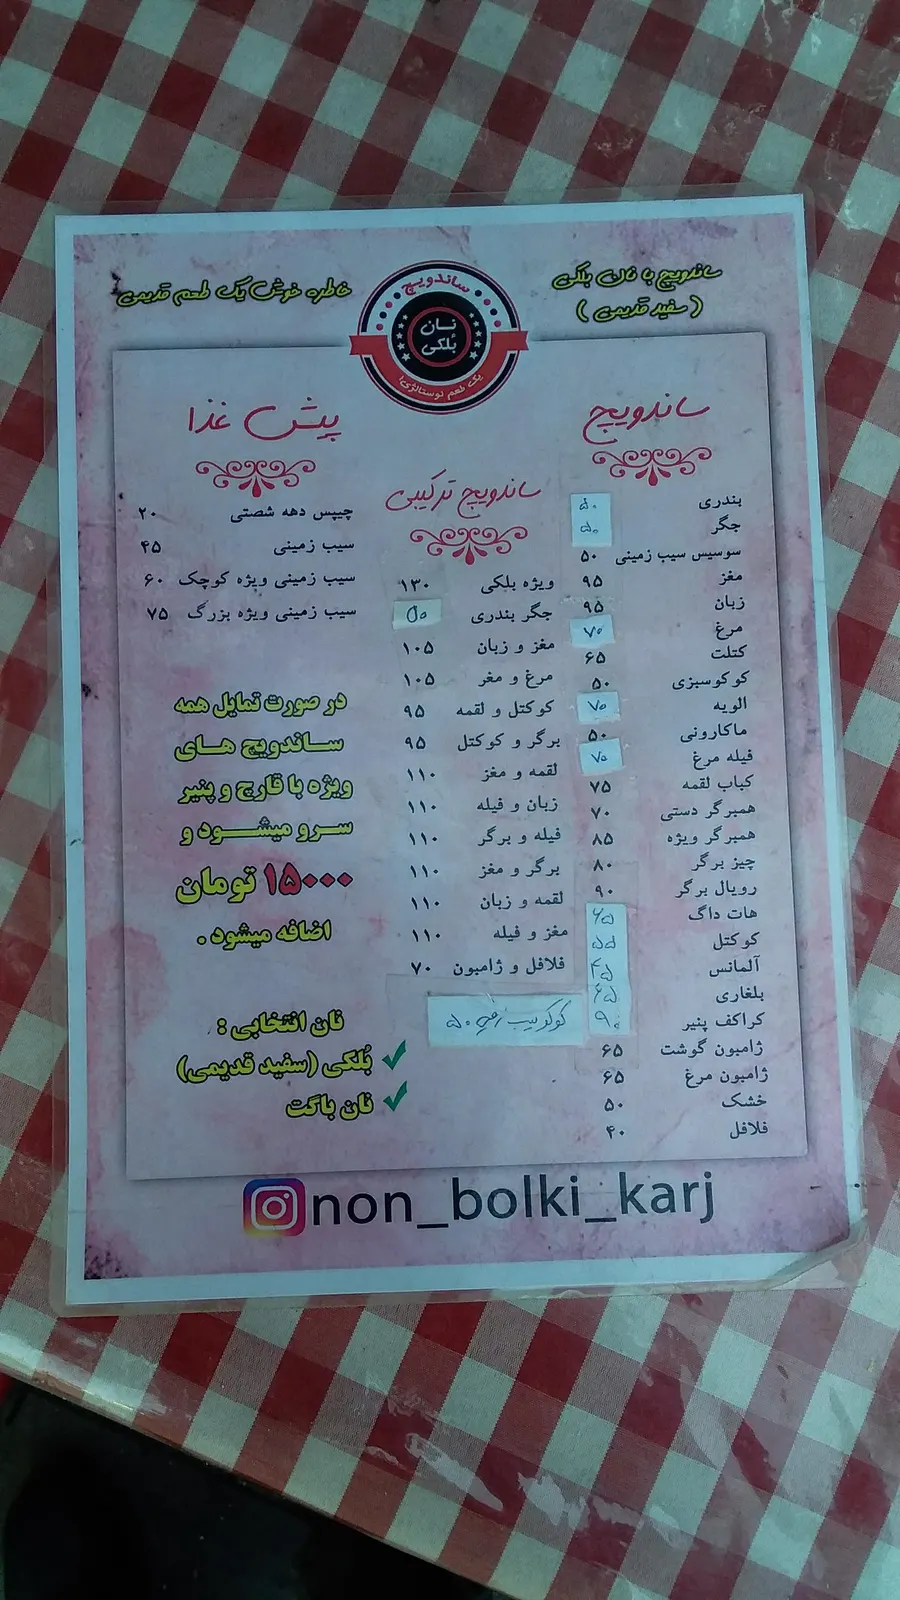 ساندویچ با نان بلکی
( سفید قدیمی )
ساندویچ
نـان
بُلکی
یک طعم نوستالژی!
خاطره خوش یک طعم قدیمی
ساندویچ
بندری ۵۰
جگر ۵۰
سوسیس سیب زمینی ۵۰
مغز ۹۵
زبان ۹۵
مرغ ۷۰
کتلت ۶۵
کوکوسبزی ۵۰
الویه ۷۰
ماکارونی ۵۰
فیله مرغ ۷۰
کباب لقمه ۷۵
همبرگر دستی ۷۰
همبرگر ویژه ۸۵
چیز برگر ۸۰
رویال برگر ۹۰
هات داگ ۶۵
کوکتل ۵۵
آلمانس ۴۵
بلغاری ۶۵
کراکف پنیر ۹۰
ژامبون گوشت ۶۵
ژامبون مرغ ۶۵
خشک ۵۰
فلافل ۴۰
ساندویچ ترکیبی
ویژه بلکی ۱۳۰
جگر بندری ۵۵
مغز و زبان ۱۰۵
مرغ و مغز ۱۰۵
کوکتل و لقمه ۹۵
برگر و کوکتل ۹۵
لقمه و مغز ۱۱۰
زبان و فیله ۱۱۰
فیله و برگر ۱۱۰
برگر و مغز ۱۱۰
لقمه و زبان ۱۱۰
مغز و فیله ۱۱۰
فلافل و ژامبون ۷۰
۵۰
پیش غذا
چیپس دهه شصتی ۲۰
سیب زمینی ۴۵
سیب زمینی ویژه کوچک ۶۰
سیب زمینی ویژه بزرگ ۷۵
در صورت تمایل همه
ساندویچ های
ویژه با قارچ و پنیر
سرو میشود و
۱۵۰۰۰ تومان
اضافه میشود .
نان انتخابی :
بُلکی (سفید قدیمی)
نان باگت
non_bolki_karj